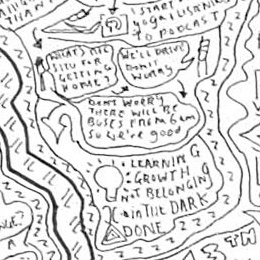 I START
YOGA I LISTEN
TO PODCAST
WHAT'S THE
SITU FOR
GETTING
HOME?
WE'LL DRIVE
DON'T
WORRY
DON'T WORRY
THERE WILL BE
BUSES FROM 6am
SO WE'RE GOOD
• LEARNING
• GROWTH
NOT BELONGING
• IN THE DARK
DONE